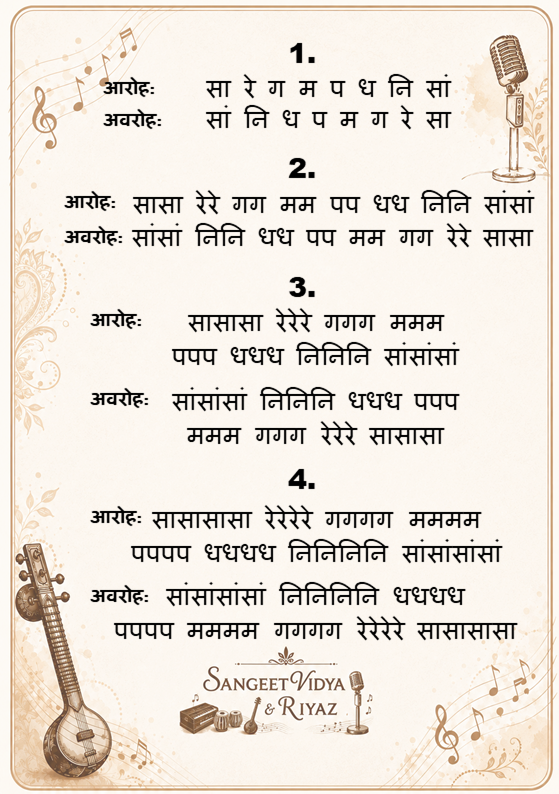 1.
आरोह: सा रे ग म प ध नि सां
अवरोह: सां नि ध प म ग रे सा
2.
आरोह: सासा रेरे गग मम पप धध निनि सांसां
अवरोह: सांसां निनि धध पप मम गग रेरे सासा
3.
आरोह: सासासा रेरेरे गगग ममम
पपप धधध निनिनि सांसांसां
अवरोह: सांसांसां निनिनि धधध पपप
ममम गगग रेरेरे सासासा
4.
आरोह: सासासासा रेरेरेरे गगगग मममम
पपपप धधधध निनिनिनि सांसांसांसां
अवरोह: सांसांसांसां निनिनिनि धधधध
पपपप मममम गगगग रेरेरेरे सासासासा
SANGEET VIDYA
& RIYAZ